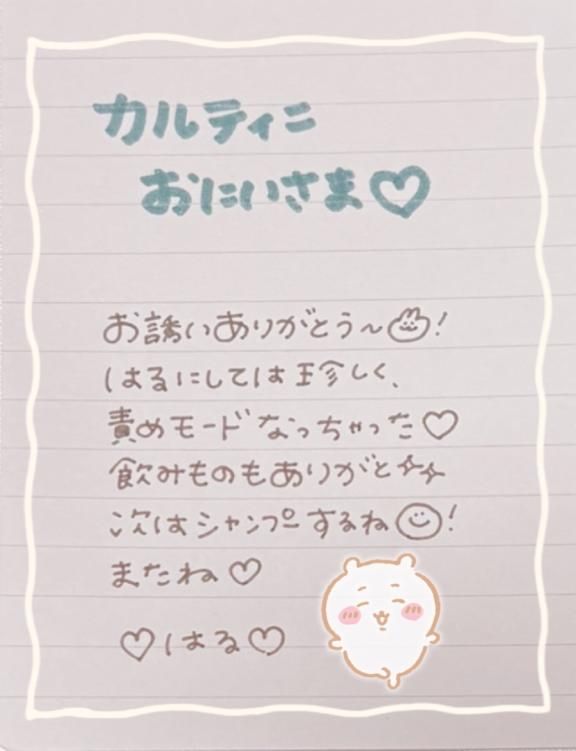 カルティニ
おにいさま♡
お誘いありがとう〜!
はるにしては珍しく、
責めモードなっちゃった♡
飲みものもありがと✨
次はシャンプーするね☺!
またね♡
♡はる♡